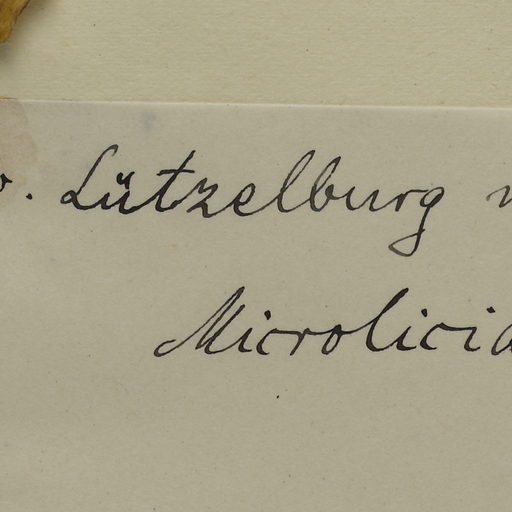 v. Lützelburg
Microlicia